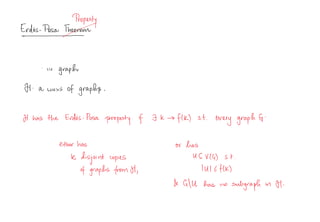 Property
Erdös-Posa Theorem
in graphs
H a class of graphs.
H has the Erdös-Posa property if ∃ k → f(k) s.t. every graph G
either has or has
k disjoint copies U ⊆ V(G) s.t.
of graphs from H, |U| ≤ f(k)
& G\U has no subgraph in H.